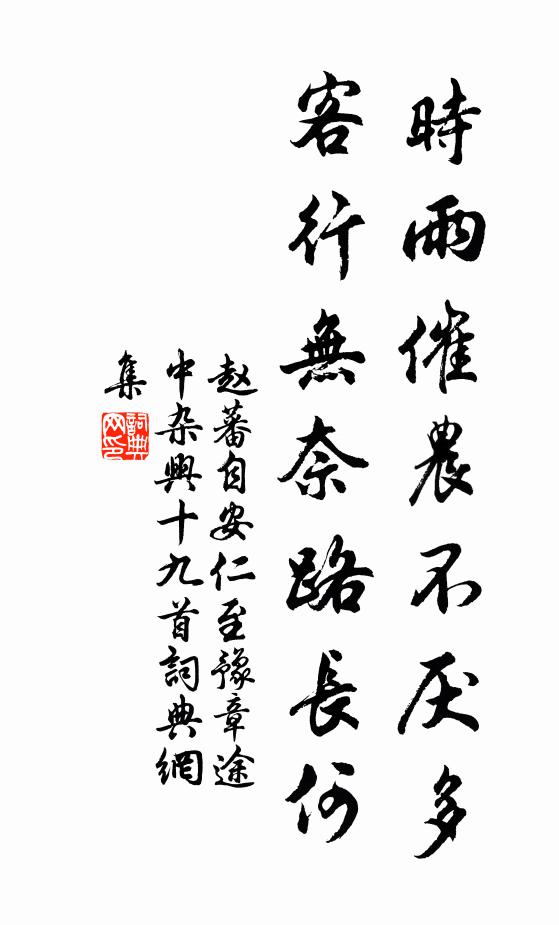 時雨催農不厌多
客行無奈路長何
赵蕃自安仁至豫章途
中杂興十九首詞典網
集
詞典
网印